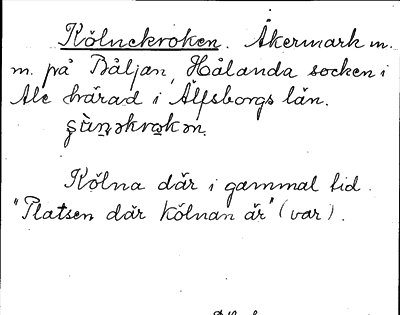 Kölnekroken. Åkermark m.
m. på Båljan, Hålanda socken i
Ale härad i Älfsborgs län.
Kölna där i gammal tid.
"Platsen där kölnan är" (var).